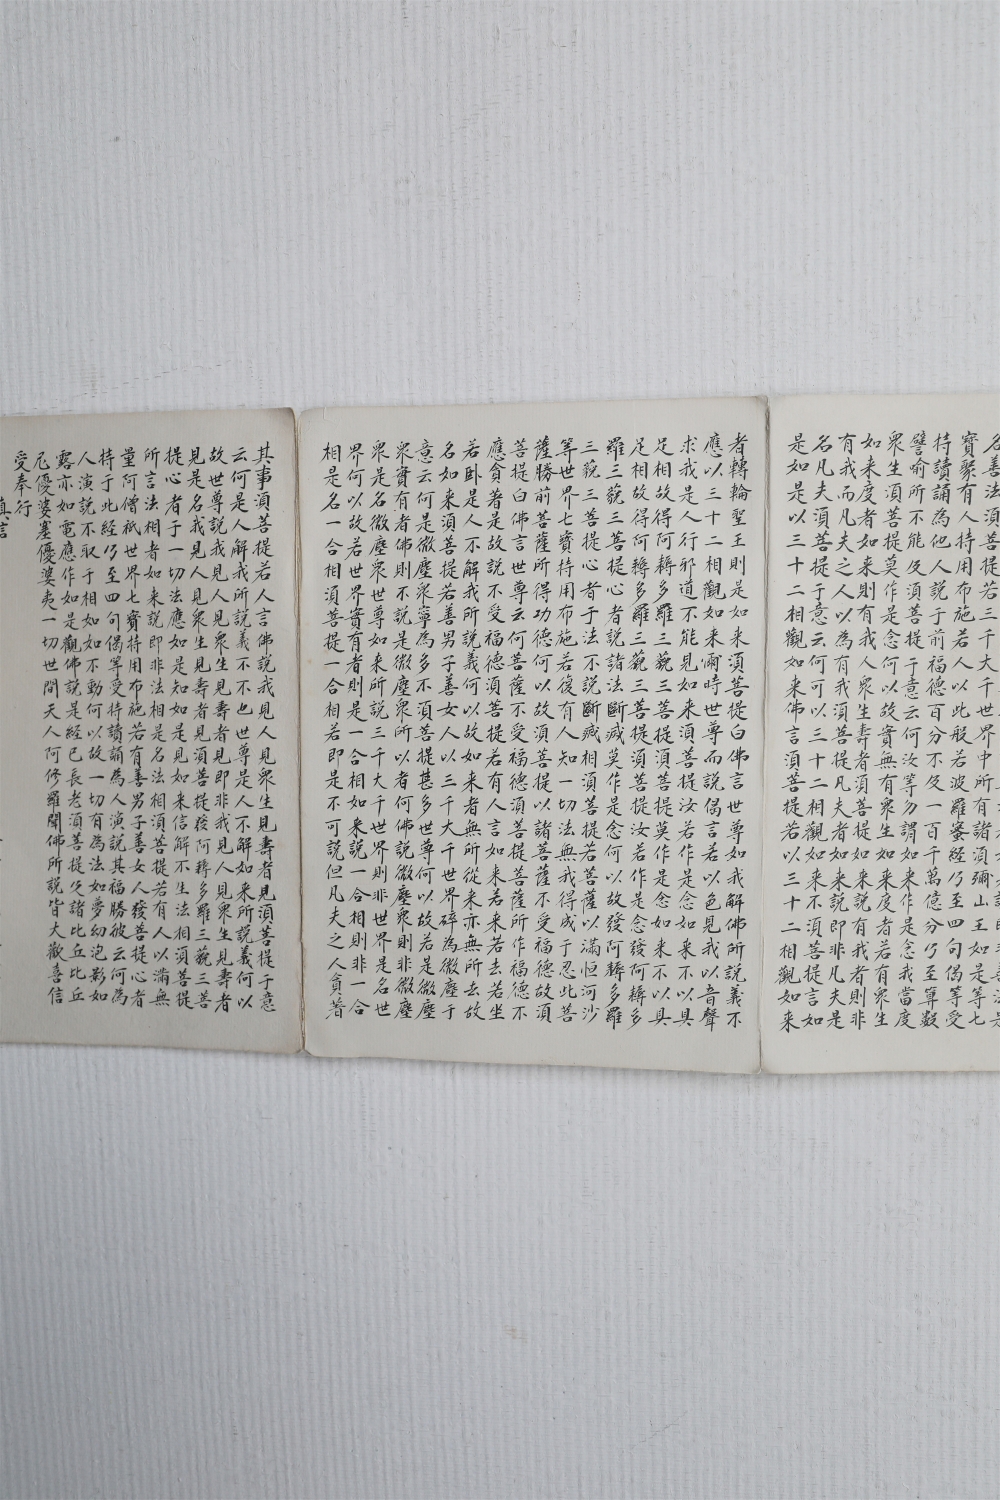 名善法湏菩提若三千大千世界中所有諸湏彌山王如是等七
寶聚有人持用布施若人以此般若波羅蜜經乃至四句偈等受
持讀誦為他人說于前福德百分不及一百千萬億分乃至算數
譬喻所不能及湏菩提于意云何汝等勿謂如来作是念我當度
衆生湏菩提莫作是念何以故實無有衆生如来度者若有衆生
如来度者如来則有我人衆生壽者湏菩提如来說有我者則非
有我而凡夫之人以為有我湏菩提凡夫者如来說即非凡夫是
名凡夫湏菩提于意云何可以三十二相觀如来不湏菩提言如
是如是以三十二相觀如来佛言湏菩提若以三十二相觀如来
者轉輪聖王則是如来湏菩提白佛言世尊如我解佛所說義不
應以三十二相觀如来爾時世尊而說偈言若以色見我以音聲
求我是人行邪道不能見如来湏菩提汝若作是念如来不以具
足相故得阿耨多羅三藐三菩提湏菩提莫作是念如来不以具
足相故得阿耨多羅三藐三菩提湏菩提汝若作是念發阿耨多
羅三藐三菩提心者說諸法斷滅莫作是念何以故發阿耨多羅
三藐三菩提心者于法不說斷滅相湏菩提若菩薩以滿恒河沙
等世界七寶持用布施若復有人知一切法無我得成于忍此菩
薩勝前菩薩所得功德何以故湏菩提以諸菩薩不受福德故湏
菩提白佛言世尊云何菩薩不受福德湏菩提菩薩所作福德不
應貪著是故說不受福德湏菩提若有人言如来若来若去若坐
若卧是人不解我所說義何以故如来者無所從来亦無所去故
名如来湏菩提若善男子善女人以三千大千世界碎為微塵于
意云何是微塵衆寧為多不湏菩提甚多世尊何以故若是微塵
衆實有者佛則不說是微塵衆所以者何佛說微塵衆則非微塵
衆是名微塵衆世尊如来所說三千大千世界則非世界是名世
界何以故若世界實有者則是一合相如来說一合相則非一合
相是名一合相湏菩提一合相若即是不可說但凡夫之人貪著
其事湏菩提若人言佛說我見人見衆生見壽者見湏菩提于意
云何是人解我所說義不不也世尊是人不解如来所說義何以
故世尊說我見人見衆生見壽者見即非我見人見衆生見壽者
見是名我見人見衆生見壽者見湏菩提發阿耨多羅三藐三菩
提心者于一切法應如是知如是見如来信解不生法相湏菩提
所言法相者如来說即非法相是名法相湏菩提若有人以滿無
量阿僧祇世界七寶持用布施若有善男子善女人發菩提心者
持于此經乃至四句偈等受持讀誦為人演說其福勝彼云何為
人演說不取于相如如不動何以故一切有為法如夢幻泡影如
露亦如電應作如是觀佛說是經已長老湏菩提及諸比丘比丘
尼優婆塞優婆夷一切世間天人阿修羅聞佛所說皆大歡喜信
受奉行
真言